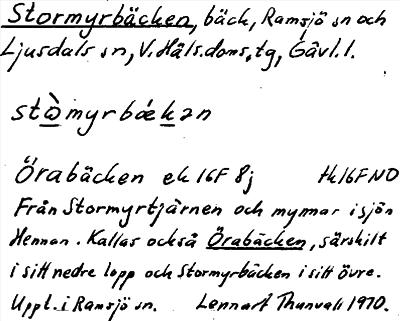 Stormyrbäcken, bäck, Ramsjö sn och
Ljusdals sn, V. Häls. doms. tg, Gävl. l.
stò̱myrbækan
Örabäcken ek 16F 8j tk 16F NO
Från Stormyrtjärnen och mynnar i sjön
Hennan. Kallas också Örabäcken, särskilt
i sitt nedre lopp och Stormyrbäcken i sitt övre.
Uppt. i Ramsjö sn. Lennart Thunvall 1970.